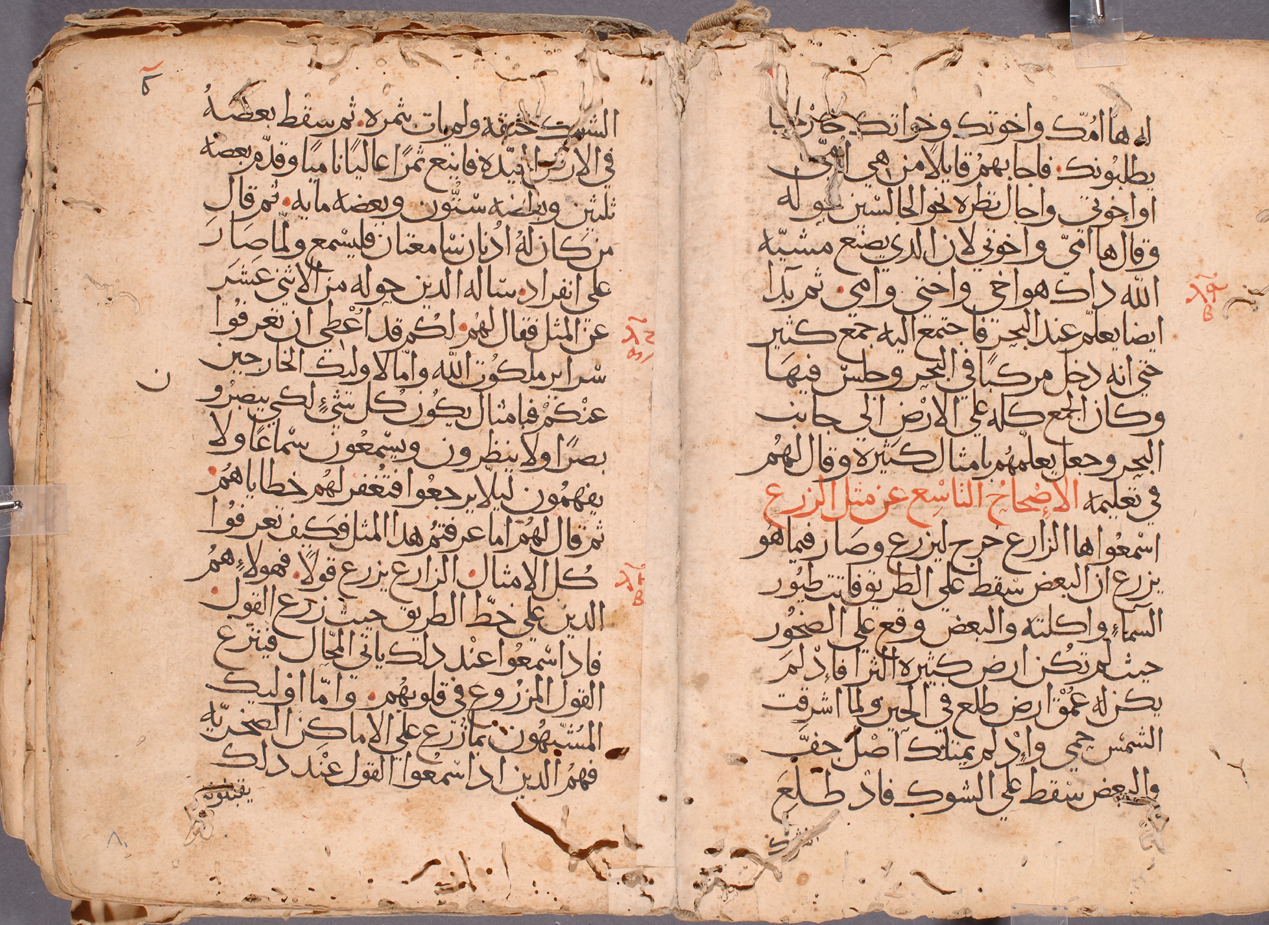 له ها امّك واخوتك وخواتك خارجا
يطلبونك. فاجابهم قايلا من هي امّي
او اخوتي واجال نظره نحو الجالسين حوله
وقال ها امّي واخوتي لان الذي يصنع مشيّه
اللّه داك هو اخي واختي وامي. ثم بدا
ايضا يعلّم عند البحر فاجتمع اليه جمع كثير
حتى انه دخل مركبًا في البحر وجلس فيها
وكان الجمع كله علي الارض الي جانب
البحر وجعل يعلّمهم بامثال كثيرة وقال لهُم
في تعليمه الاصحاحُ التاسع عن مثل الزرع
اسمعوا ها الزارع خرج ليزرع وصار فيما هُو
يزرع ان البعض سقط علي الطريق فاتت طيُور
السمآءِ واكلته والبعض وقع علي الصخُور
حيث لم تكن ارض كثيرة الثرا فاِذ لم
يكن له عُمق ارض طلع في الحين ولما اشرقت
الشمس حمي واِذ لم يمتلك آصْل جفّ
والبعض سقط علي الشوك فاذ طلَعَ
الشوك خنقه ولم يات بثمره. ثم سقط بعضهُ
في الارض الجيّدة فاينع ثمرًا عاليًا ناميًا وقدّم بعضه
ثلثين وبعضه ستُّون وبعضه مايه. ثم قال
من كان لهُ اُذنان سامعتان فليسمع ولمّا صَارَ
علي انفراد. ساله الدين حوله من الاثني عشَر
عن المثل فقال لهُم. لكُم قد اُعْطِي ان تعرفُوا
سراير ملكوُت اللّه وامّا لاوليك الخارجين
عنكُم فبامثال يكوُن كُل شيْءٍ لكي يبصرُو
بصرًا ولا ينظرون ويسمعُون سماعًا ولا
يفهمُون ليلا يرجعوا فتُغفر لهُم خطاياهم.
ثم قال لهُم اما عرفتمُ هدا المثل فكيف تعرفُوا
كُل الامثال. الزارع يزرع قولًا. فهولاءِ هُم
الدين علي خطّ الطريق حيث زرع القول.
فاداسمعُوا عنْد دلك ياتي المحّال فينزع
القول المزروع في قلوبهُم. وامّا اوليك
المُشبّهون بما زرع علي الاماكن الصخريّه
فهمُ الدين ادا سمعُوا القول عنْد دلك
يقبلونه